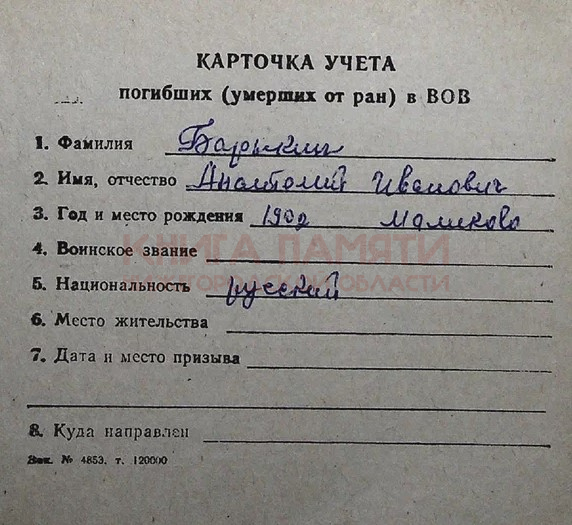 КАРТОЧКА УЧЕТА
погибших (умерших от ран) в ВОВ
1. Фамилия Барыкин
2. Имя, отчество Анатолий Иванович
3. Год и место рождения 1902 Маликово
КНИГА ПАМЯТИ
4. Воинское звание
НИЖЕГОРОДСКОЙ ОБЛАСТИ
5. Национальность русский
6. Место жительства
7. Дата и место призыва
8. Куда направлен
Зак. № 4853. т. 120000